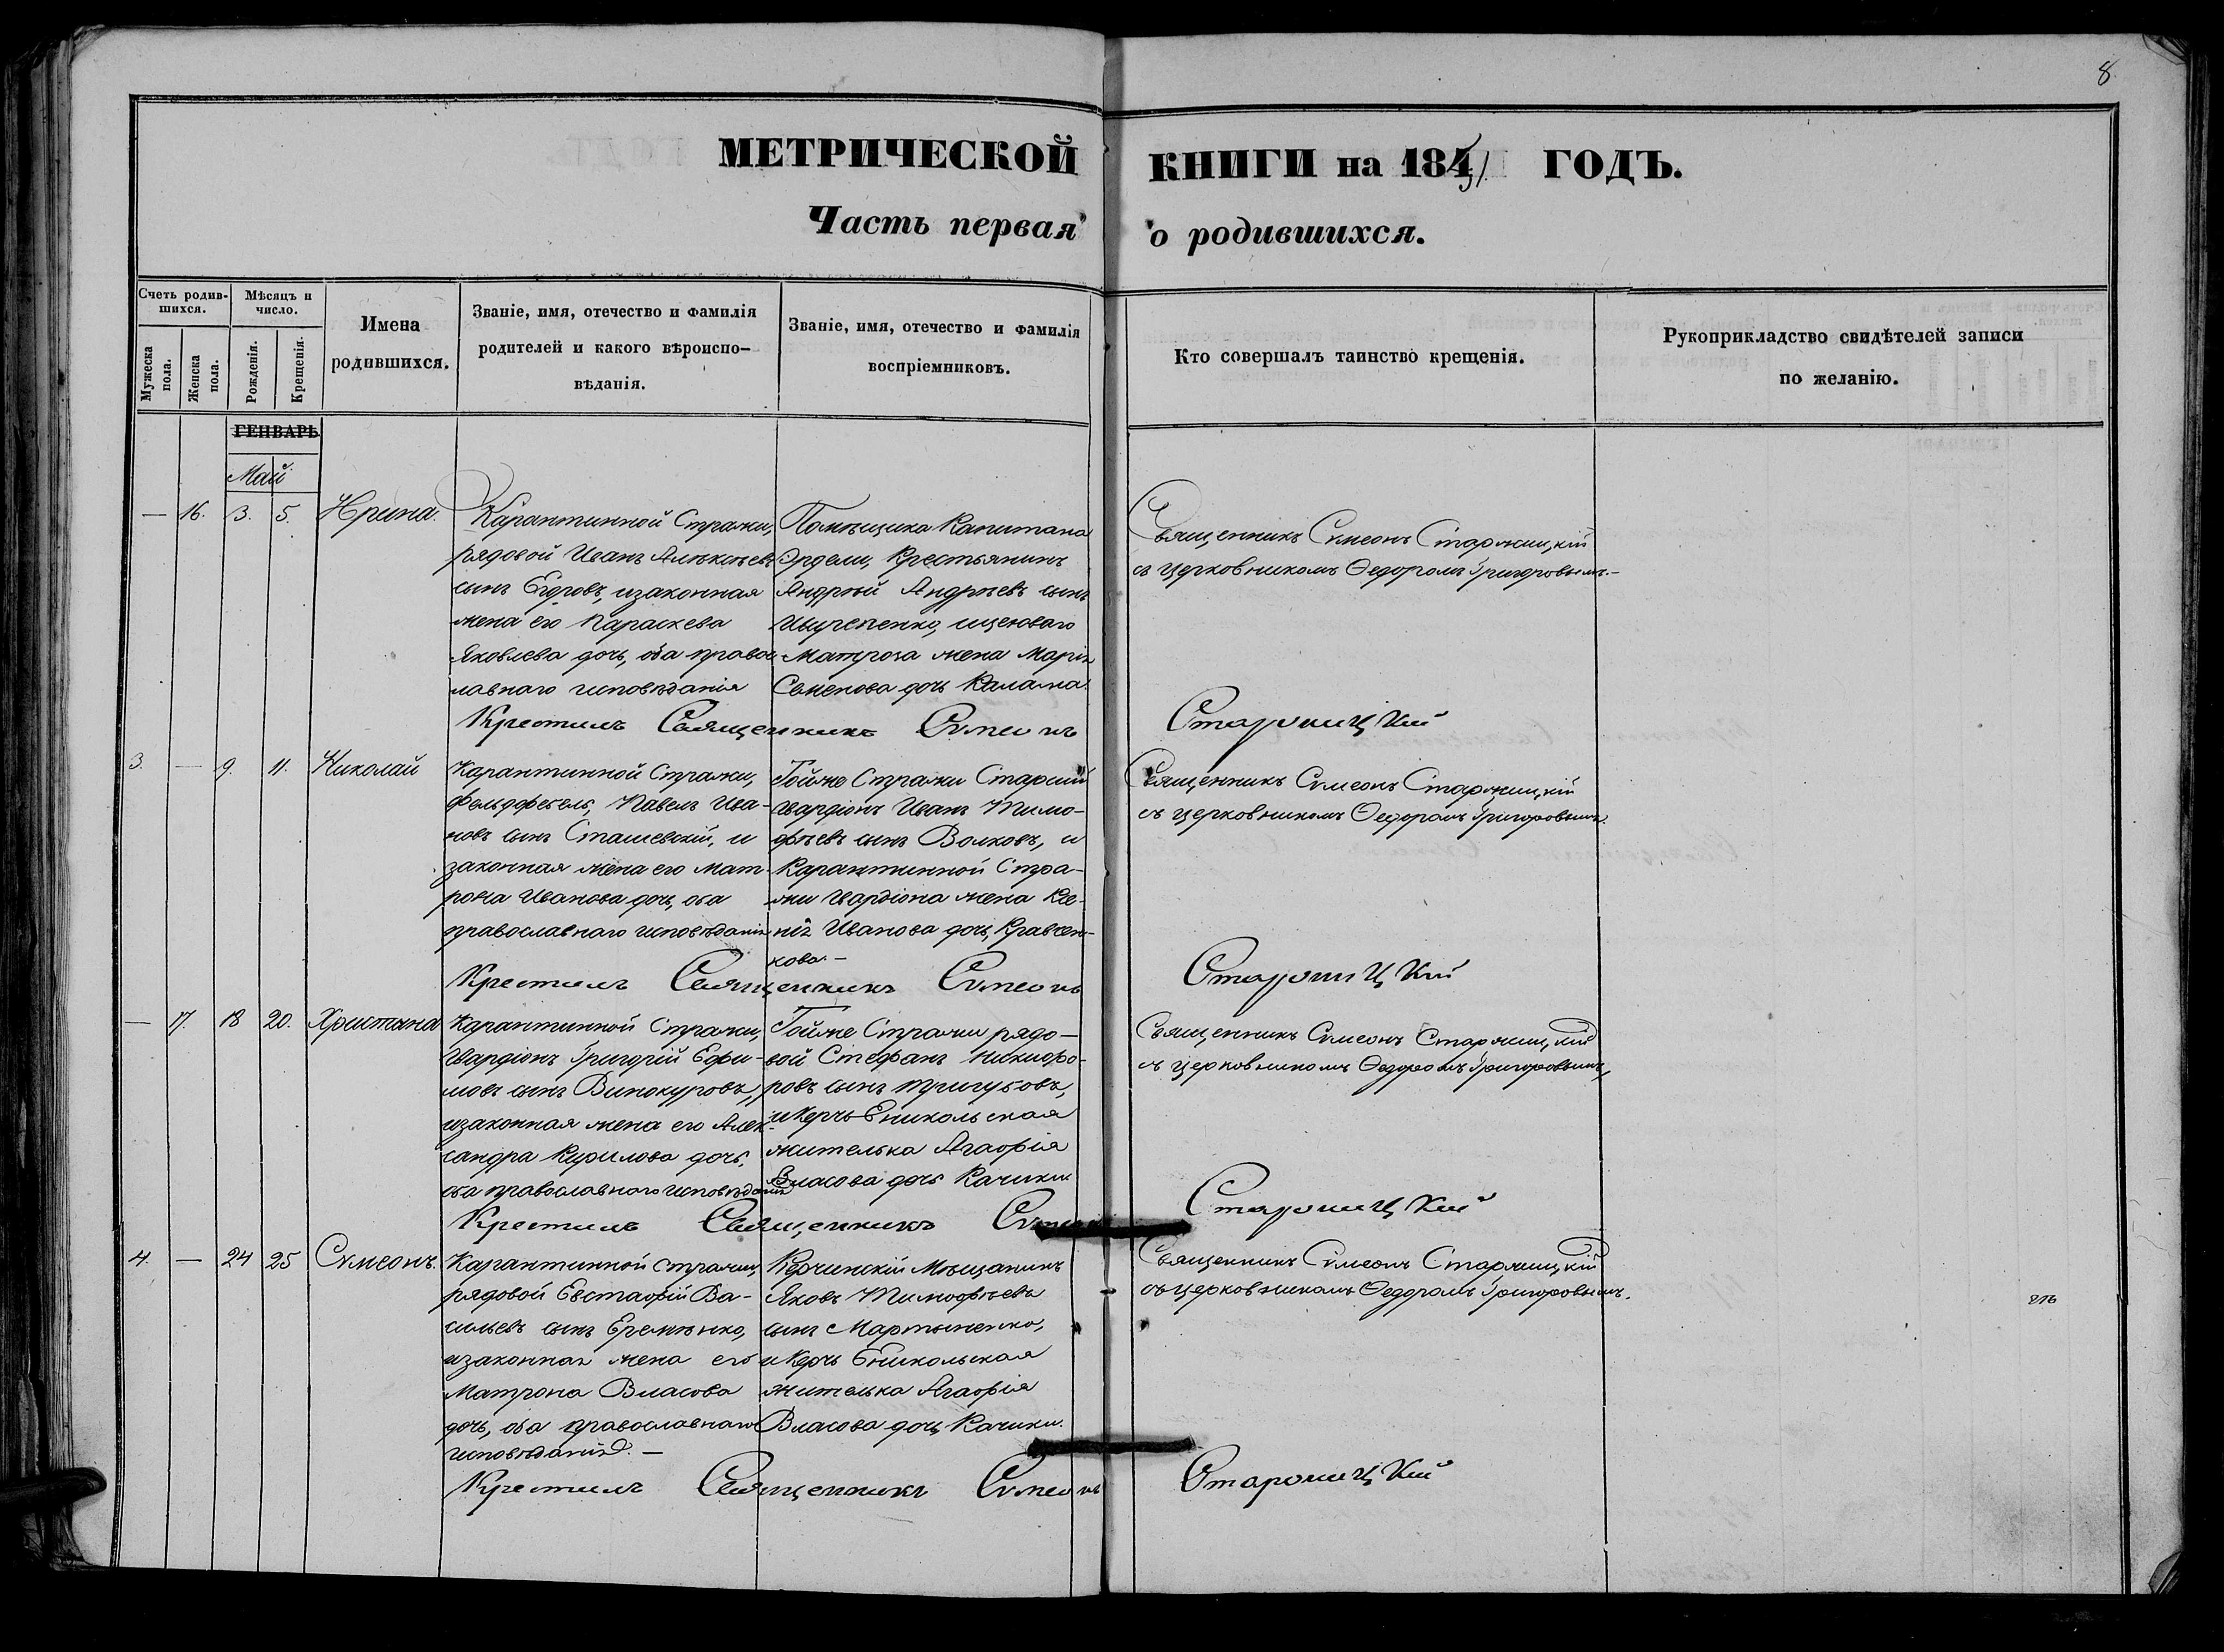 8.
МЕТРИЧЕСКОЙ КНИГИ на 1851 ГОДЪ.
Часть первая о родившихся.
Счетъ родив-
шихся.
Мужеска пола.
Женска пола.
Мѣсяцъ и
число.
Рожденія.
Крещенія.
Имена
родившихся.
Званіе, имя, отечество и фамилія
родителей и какого вѣроиспо-
вѣданія.
Званіе, имя, отечество и фамилія
воспріемниковъ.
Кто совершалъ таинство крещенія.
Рукоприкладство свидѣтелей записи
по желанію.
ГЕНВАРЬ
Май.
— 16. 3. 5. Ирина.
Карантинной Стражи,
рядовой Иванъ Алексѣевъ
сынъ Егоровъ, изаконная
жена его Параскева
Яковлева дочь, оба правос
лавнаго исповѣданія
Помѣщика Капитана
Эрдели, Крестьянинъ
Андрѣй Андрѣевъ сынъ
Матроза жена Марія
Семенова дочь
Священникъ Сѵмеонъ Старжицкій
съ церковникомъ Ѳедоромъ Григоровымъ.-
Крестилъ Священникъ Сѵмеонъ Старжицкій
3. — 9. 11. Николай
Карантинной Стражи,
Фельдфебель, Павелъ Ива-
новъ сынъ Сташевскій, и
законная жена его Мат-
рона Иванова дочь, оба
православнаго исповѣданія
Тойже Стражи Старшій
Гвардіонъ Иванъ Тимо-
фѣевъ сынъ Волковъ, и
Карантинной Стра-
жи Гвардіона жена Ксе-
нія Иванова дочь, Кравчен-
кова.-
Священникъ Сѵмеонъ Старжицкій
съ церковникомъ Ѳедоромъ Григоровымъ.
Крестилъ Священникъ Сѵмеонъ Старжицкій
— 17. 18 20. Христина
Карантинной Стражи,
Гвардіонъ Григорій Ефи-
мовъ сынъ Винокуровъ,
изаконная жена его Алек-
сандра Кирилова дочь,
оба православнаго исповѣданія
Тойже Стражи рядо-
вой Стефанъ Никифо-
ровъ сынъ Тригубовъ,
иКерчь-Еникольская
жителька Агафія
Власова дочь Качики
Священникъ Сѵмеонъ Старжицкій
съ церковникомъ Ѳедоромъ Григоровымъ,
Крестилъ Священникъ Сѵмеонъ Старжицкій
4. — 24 25 Сѵмеонъ.
Карантинной стражи,
рядовой Евстафій Ва-
сильевъ сынъ Еременко,
изаконная жена его
Матрона Власова
дочь, оба православнаго
исповѣданія.-
Керчинскій Мѣщанинъ
Яковъ Тимофѣевъ
сынъ Мартыненко,
иКерчь Еникольская
жителька Агафія
Власова дочь Качики.
Священникъ Сѵмеонъ Старжицкій
съ церковникомъ Ѳедоромъ Григоровымъ.
Крестилъ Священникъ Сѵмеонъ Старжицкій